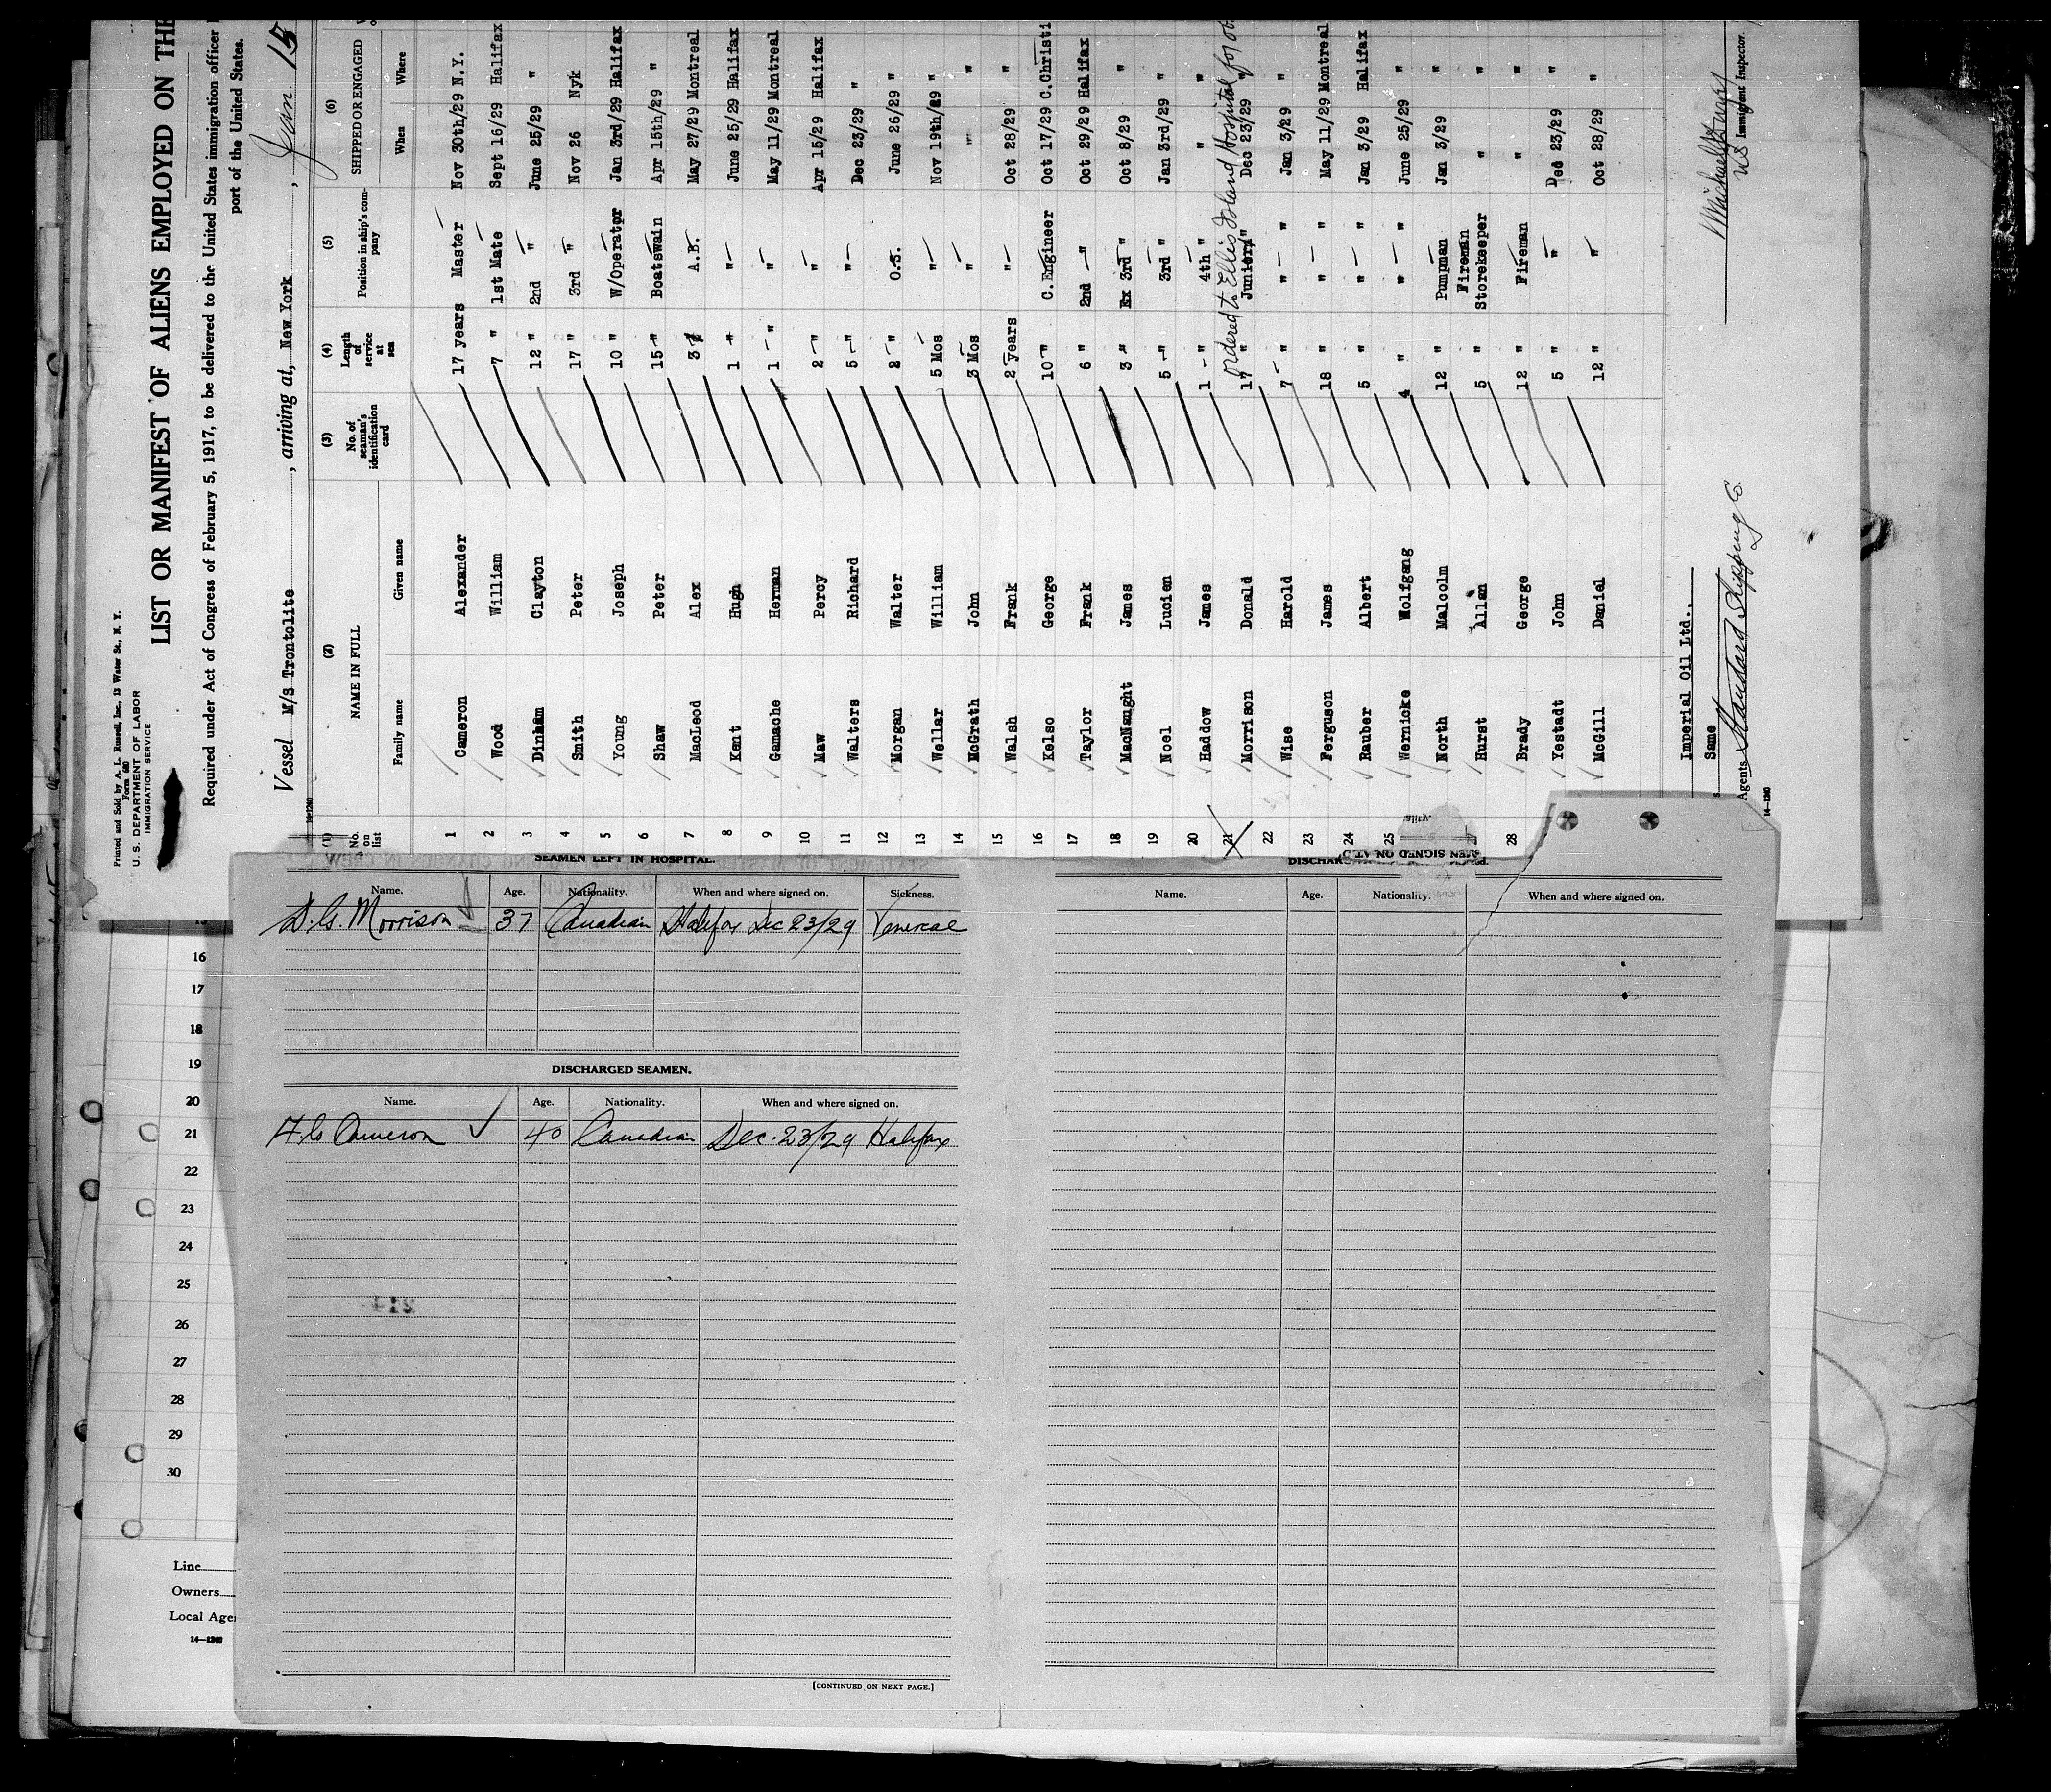 Printed and Sold by A. L. Russell, Inc., 13 Water St., N. Y.
Form 680
U. S. DEPARTMENT OF LABOR
IMMIGRATION SERVICE
LIST OR MANIFEST OF ALIENS EMPLOYED ON THE
Required under Act of Congress of February 5, 1917, to be delivered to the United States immigration officer
port of the United States.
Vessel M/S Trontolite, arriving at, New York, Jan 15
14-1240
(1) No. on list (2) NAME IN FULL (3) No. of seaman's identification card (4) Length of service at sea (5) Position in ship's company (6) SHIPPED OR ENGAGED
Family name Given name When Where
1 Cameron Alexander 17 years Master Nov 30th/29 N.Y.
2 Wood William 7 " 1st Mate Sept 16/29 Halifax
3 Dinham Clayton 12 " 2nd " June 25/29 "
4 Smith Peter 17 " 3rd " Nov 26 Nyk
5 Young Joseph 10 " W/Operator Jan 3rd/29 Halifax
6 Shaw Peter 15 " Boatswain Apr 15th/29 "
7 MacLeod Alex 3 A.B. May 27/29 Montreal
8 Kent Hugh 1 " " June 25/29 Halifax
9 Gamache Herman 1 " " May 11/29 Montreal
10 Maw Percy 2 " " Apr 15/29 Halifax
11 Walters Richard 5 " " Dec 23/29 "
12 Morgan Walter 2 " O.S. June 26/29 "
13 Wellar William 5 Mos " Nov 19th/29 "
14 McGrath John 3 Mos " " "
15 Walsh Frank 2 years " Oct 28/29 "
16 Kelso George 10 " C.Engineer Oct 17/29 C.Christi
17 Taylor Frank 6 " 2nd " Oct 29/29 Halifax
18 MacNaught James 3 " Ex 3rd " Oct 8/29 "
19 Noel Lucien 5 " 3rd " Jan 3rd/29 "
20 Haddow James 1 " 4th " " "
Ordered to Ellis Island Hospital for
21 Morrison Donald 17 " Junior " Dec 23/29 "
22 Wise Harold 7 " " " Jan 3/29 "
23 Ferguson James 18 " " " May 11/29 Montreal
24 Rauber Albert 5 " " " Jan 3/29 Halifax
25 Wernicke Wolfgang 4 " " " June 25/29 "
North Malcolm 12 " Pumpman Jan 3/29 "
27 Hurst Allan 5 " Fireman Storekeeper " "
28 Brady George 12 " Fireman " "
Yestadt John 5 " " Dec 23/29 "
McGill Daniel 12 " " Oct 28/29 "
Imperial Oil Ltd.,
Same
Agents Standard Shipping Co.
14-1240
US Immigrant Inspector.
SEAMEN LEFT IN HOSPITAL.
Name. Age. Nationality. When and where signed on. Sickness.
D. G. Morrison 37 Canadian Halifax Dec 23/29 Venereal
DISCHARGED SEAMEN.
Name. Age. Nationality. When and where signed on.
Cameron 40 Canadian Dec. 23/29 Halifax
[CONTINUED ON NEXT PAGE.]
Name. Age. Nationality. When and where signed on.
16
17
18
19
20
21
22
23
24
25
26
27
28
29
30
Line
Owners
Local Age
14-1240